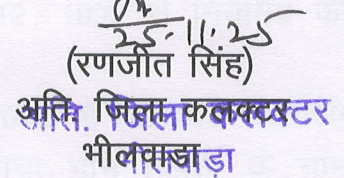 25.11.25
(रणजीत सिंह)
अति. जिला कलक्टर
भीलवाडा
अति. जिला कलक्टर
भीलवाड़ा